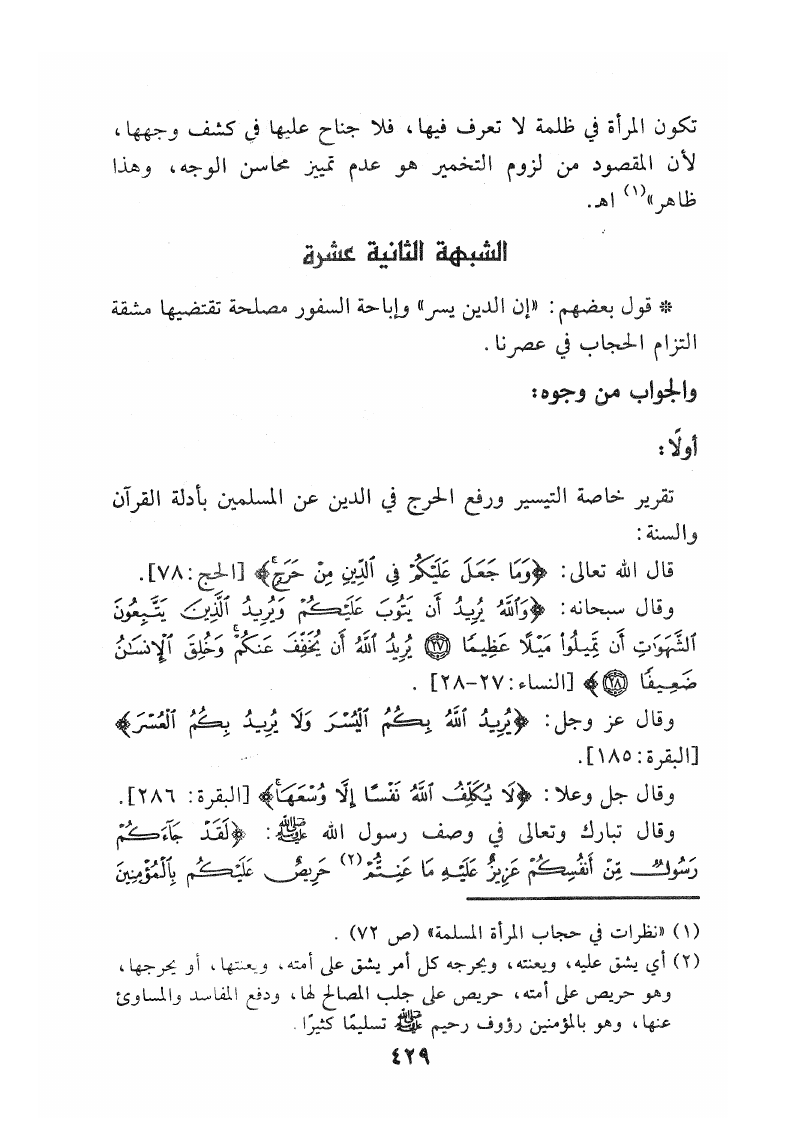 تكون المرأة في ظلمة لا تعرف فيها، فلا جناح عليها في كشف وجهها،
لأن المقصود من لزوم التخمير هو عدم تمييز محاسن الوجه، وهذا
ظاهر»(١) اهـ.
الشبهة الثانية عشرة
* قول بعضهم: «إن الدين يسر» وإباحة السفور مصلحة تقتضيها مشقة
التزام الحجاب في عصرنا.
والجواب من وجوه:
أولًا:
تقرير خاصة التيسير ورفع الحرج في الدين عن المسلمين بأدلة القرآن
والسنة:
قال الله تعالى: ﴿وَمَا جَعَلَ عَلَيْكُمْ فِي ٱلدِّينِ مِنْ حَرَجٍۚ﴾ [الحج:٧٨].
وقال سبحانه: ﴿وَٱللَّهُ يُرِيدُ أَن يَتُوبَ عَلَيْكُمْ وَيُرِيدُ ٱلَّذِينَ يَتَّبِعُونَ
ٱلشَّهَوَٰتِ أَن تَمِيلُوا۟ مَيْلًا عَظِيمًا ﴿٢٧﴾ يُرِيدُ ٱللَّهُ أَن يُخَفِّفَ عَنكُمْۚ وَخُلِقَ ٱلْإِنسَٰنُ
ضَعِيفًا ﴿٢٨﴾﴾ [النساء:٢٧-٢٨].
وقال عز وجل: ﴿يُرِيدُ ٱللَّهُ بِكُمُ ٱلْيُسْرَ وَلَا يُرِيدُ بِكُمُ ٱلْعُسْرَ﴾
[البقرة:١٨٥].
وقال جل وعلا: ﴿لَا يُكَلِّفُ ٱللَّهُ نَفْسًا إِلَّا وُسْعَهَاۚ﴾ [البقرة: ٢٨٦].
وقال تبارك وتعالى في وصف رسول الله ﷺ: ﴿لَقَدْ جَآءَكُمْ
رَسُولٌ مِّنْ أَنفُسِكُمْ عَزِيزٌ عَلَيْهِ مَا عَنِتُّمْ(٢) حَرِيصٌ عَلَيْكُم بِٱلْمُؤْمِنِينَ
(١) «نظرات في حجاب المرأة المسلمة» (ص ٧٢).
(٢) أي يشق عليه، ويعنته، ويحرجه كل أمر يشق على أمته، ويعنتها، أو يحرجها،
وهو حريص على أمته، حريص على جلب المصالح لها، ودفع المفاسد والمساوئ
عنها، وهو بالمؤمنين رؤوف رحيم ﷺ تسليمًا كثيرًا.
٤٢٩